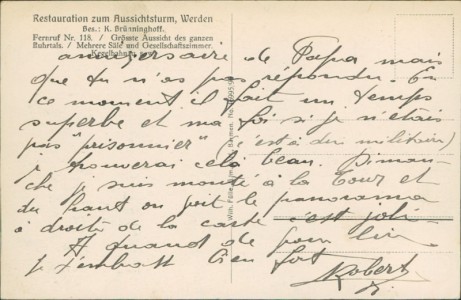 Restauration zum Aussichtsturm, Werden
Bes.: K. Brünninghoff.
Fernruf Nr. 118. / Grösste Aussicht des ganzen
Ruhrtals. / Mehrere Säle und Gesellschaftszimmer.
anniversaire de Papa mais
que tu n'as pas répondu. En
ce moment il fait un temps
superbe et ma foi si je n'étais
pas "prisonnier" (c'est à dire militaire)
je trouverai cela beau. Diman-
che je suis monté à la tour et
du haut on voit le panorama
à droite de la carte c'est joli
A quand de
Je t'embrasse bien fort
Robert